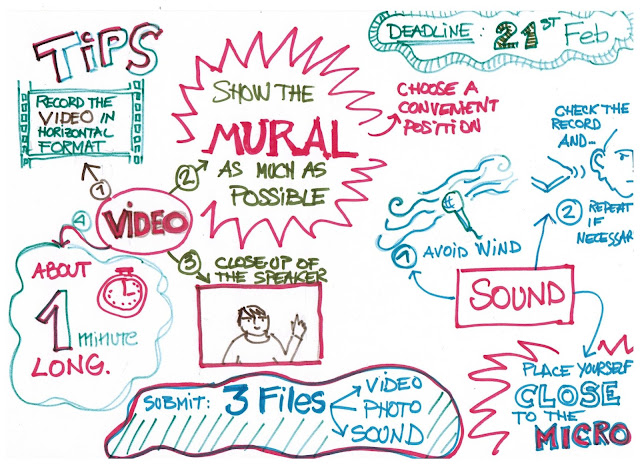 TIPS
DEADLINE: 21ST Feb
RECORD THE
VIDEO IN
HORIZONTAL
FORMAT
SHOW THE
MURAL
AS MUCH AS
POSSIBLE
CHOOSE A
CONVENIENT
POSITION
1
2
VIDEO
3
4
CLOSE UP OF
THE SPEAKER
ABOUT
1
minute
LONG.
CHECK THE
RECORD
AND-
2 REPEAT
IF
NECESSAR
1 AVOID WIND
SOUND
PLACE YOURSELF
CLOSE
TO THE
MICRO
SUBMIT: 3 Files
VIDEO
PHOTO
SOUND